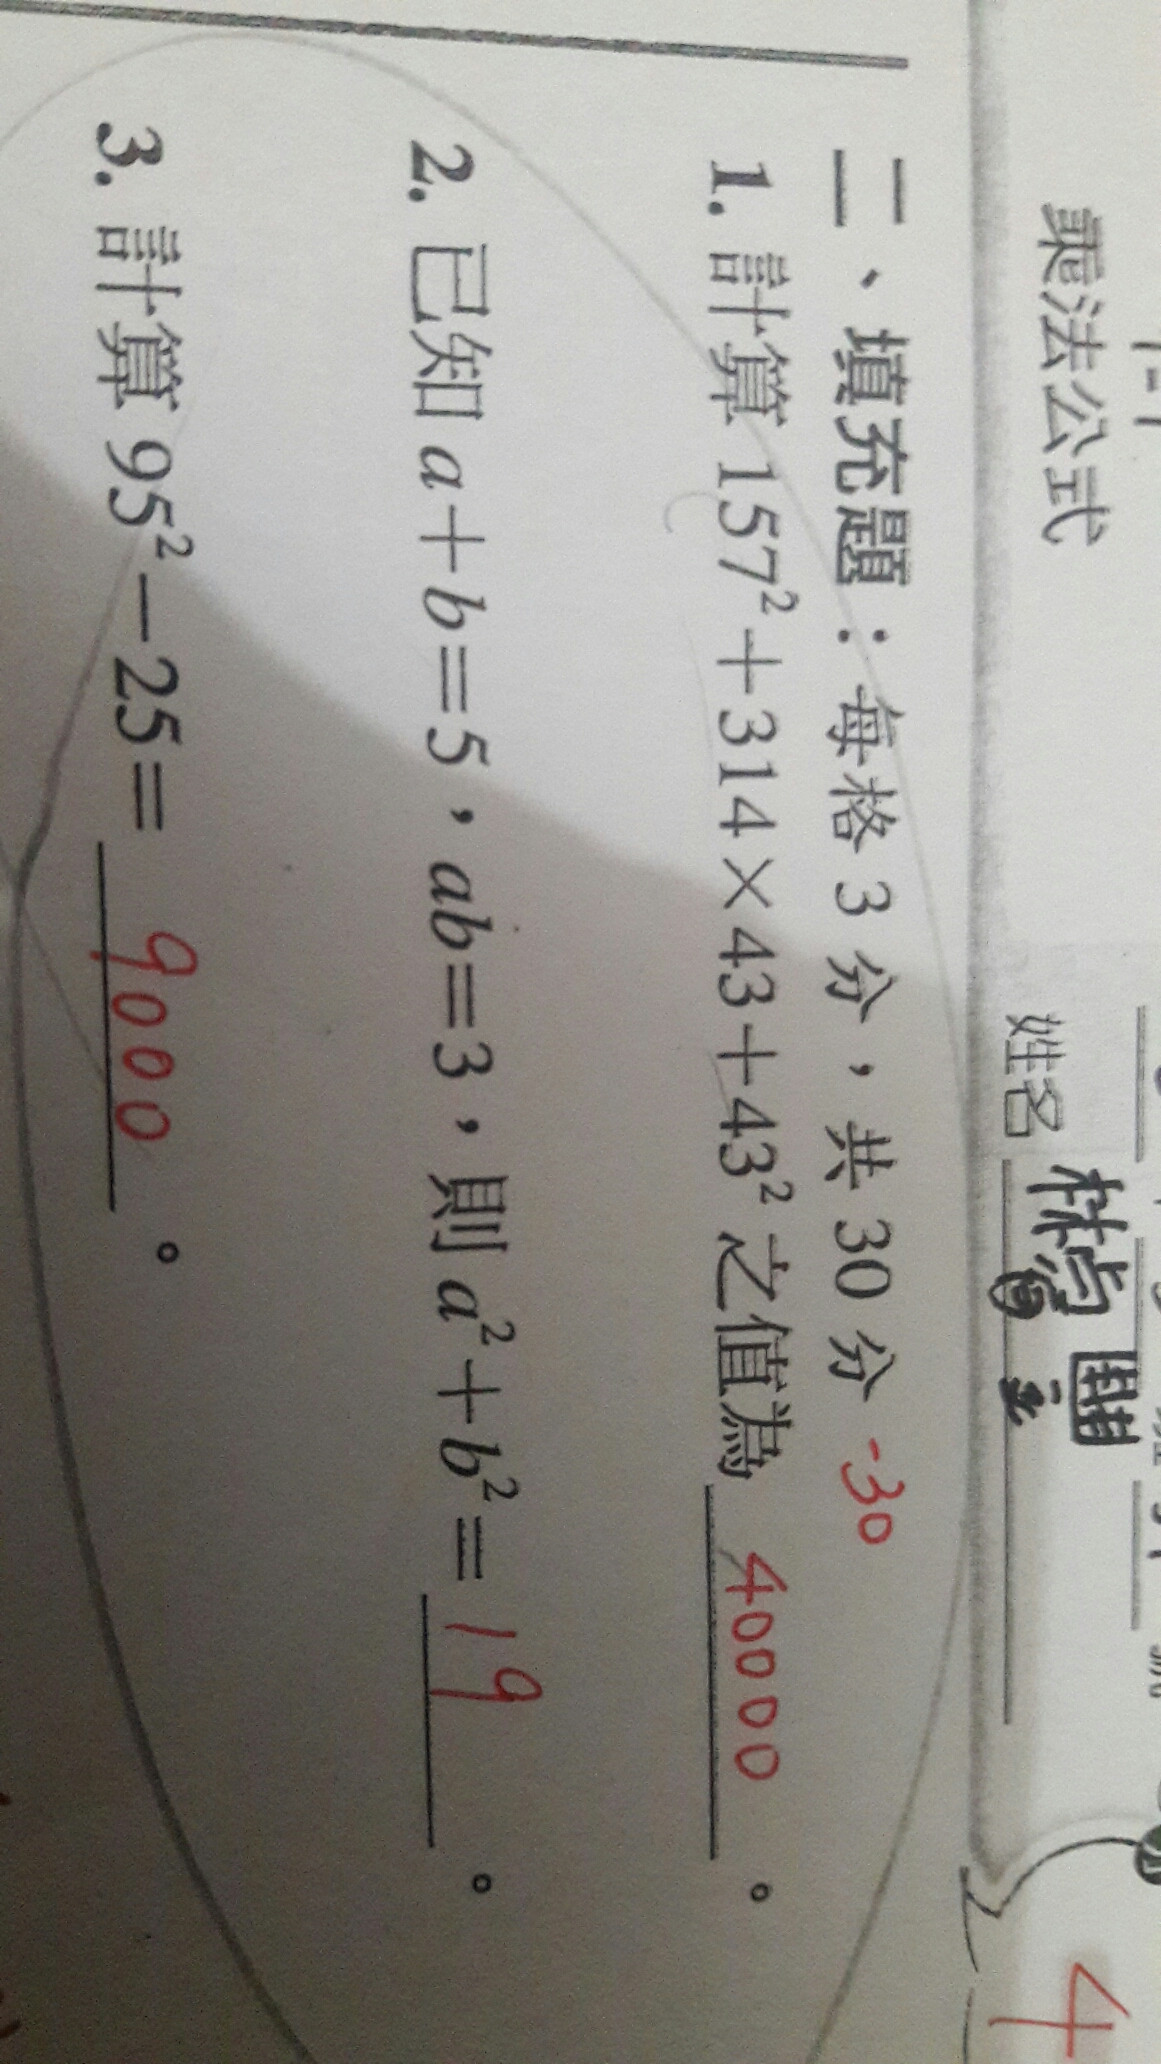 乘法公式
姓名
二、填充題：每格 3 分，共 30 分 -30
1. 計算 157²+314×43+43² 之值為 40000 。
2. 已知 a+b=5，ab=3，則 a²+b²= 19 。
3. 計算 95²-25= 9000 。
4